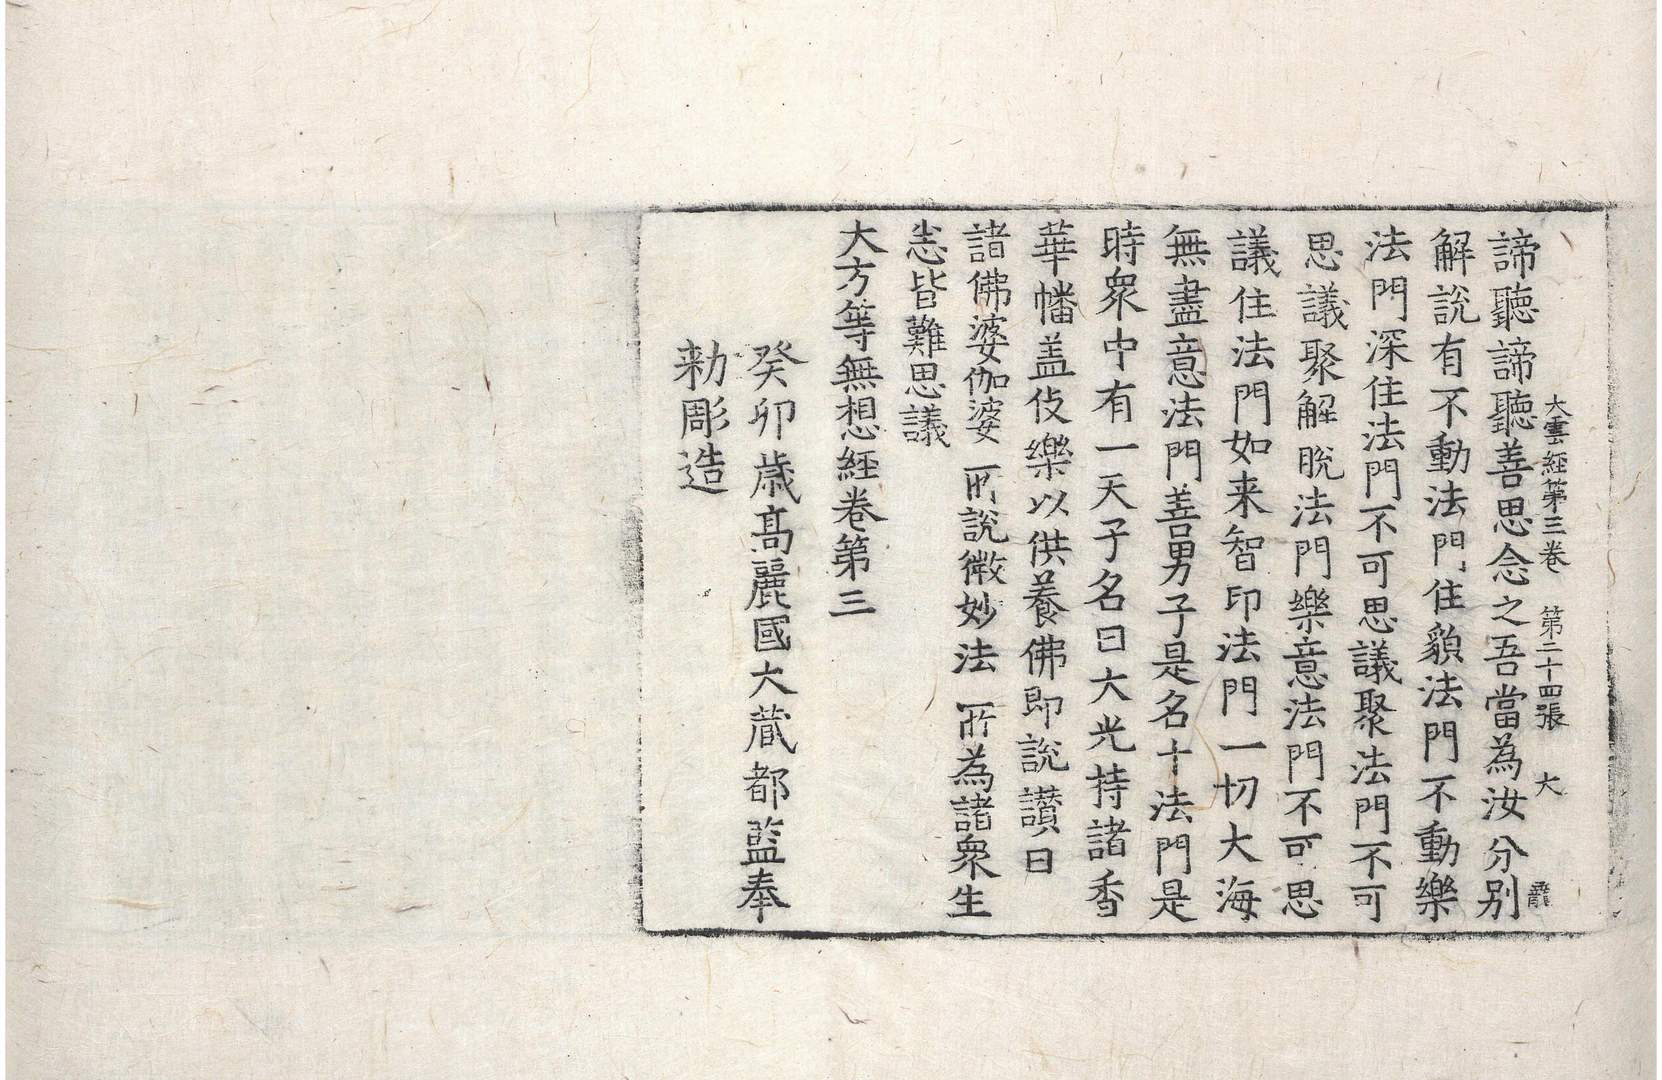 大雲經第三卷 第二十四張 大
諦聽諦聽善思念之吾當為汝分別
解說有不動法門住藐法門不動樂
法門深住法門不可思議聚法門不可
思議聚解脫法門樂意法門不可思
議住法門如来智印法門一切大海
無盡意法門善男子是名十法門是
時衆中有一天子名曰大光持諸香
華幡盖伎樂以供養佛即說讃曰
諸佛婆伽婆 所說微妙法 所為諸衆生
悉皆難思議
大方等無想經卷第三
癸卯歳高麗國大藏都監奉
勅彫造